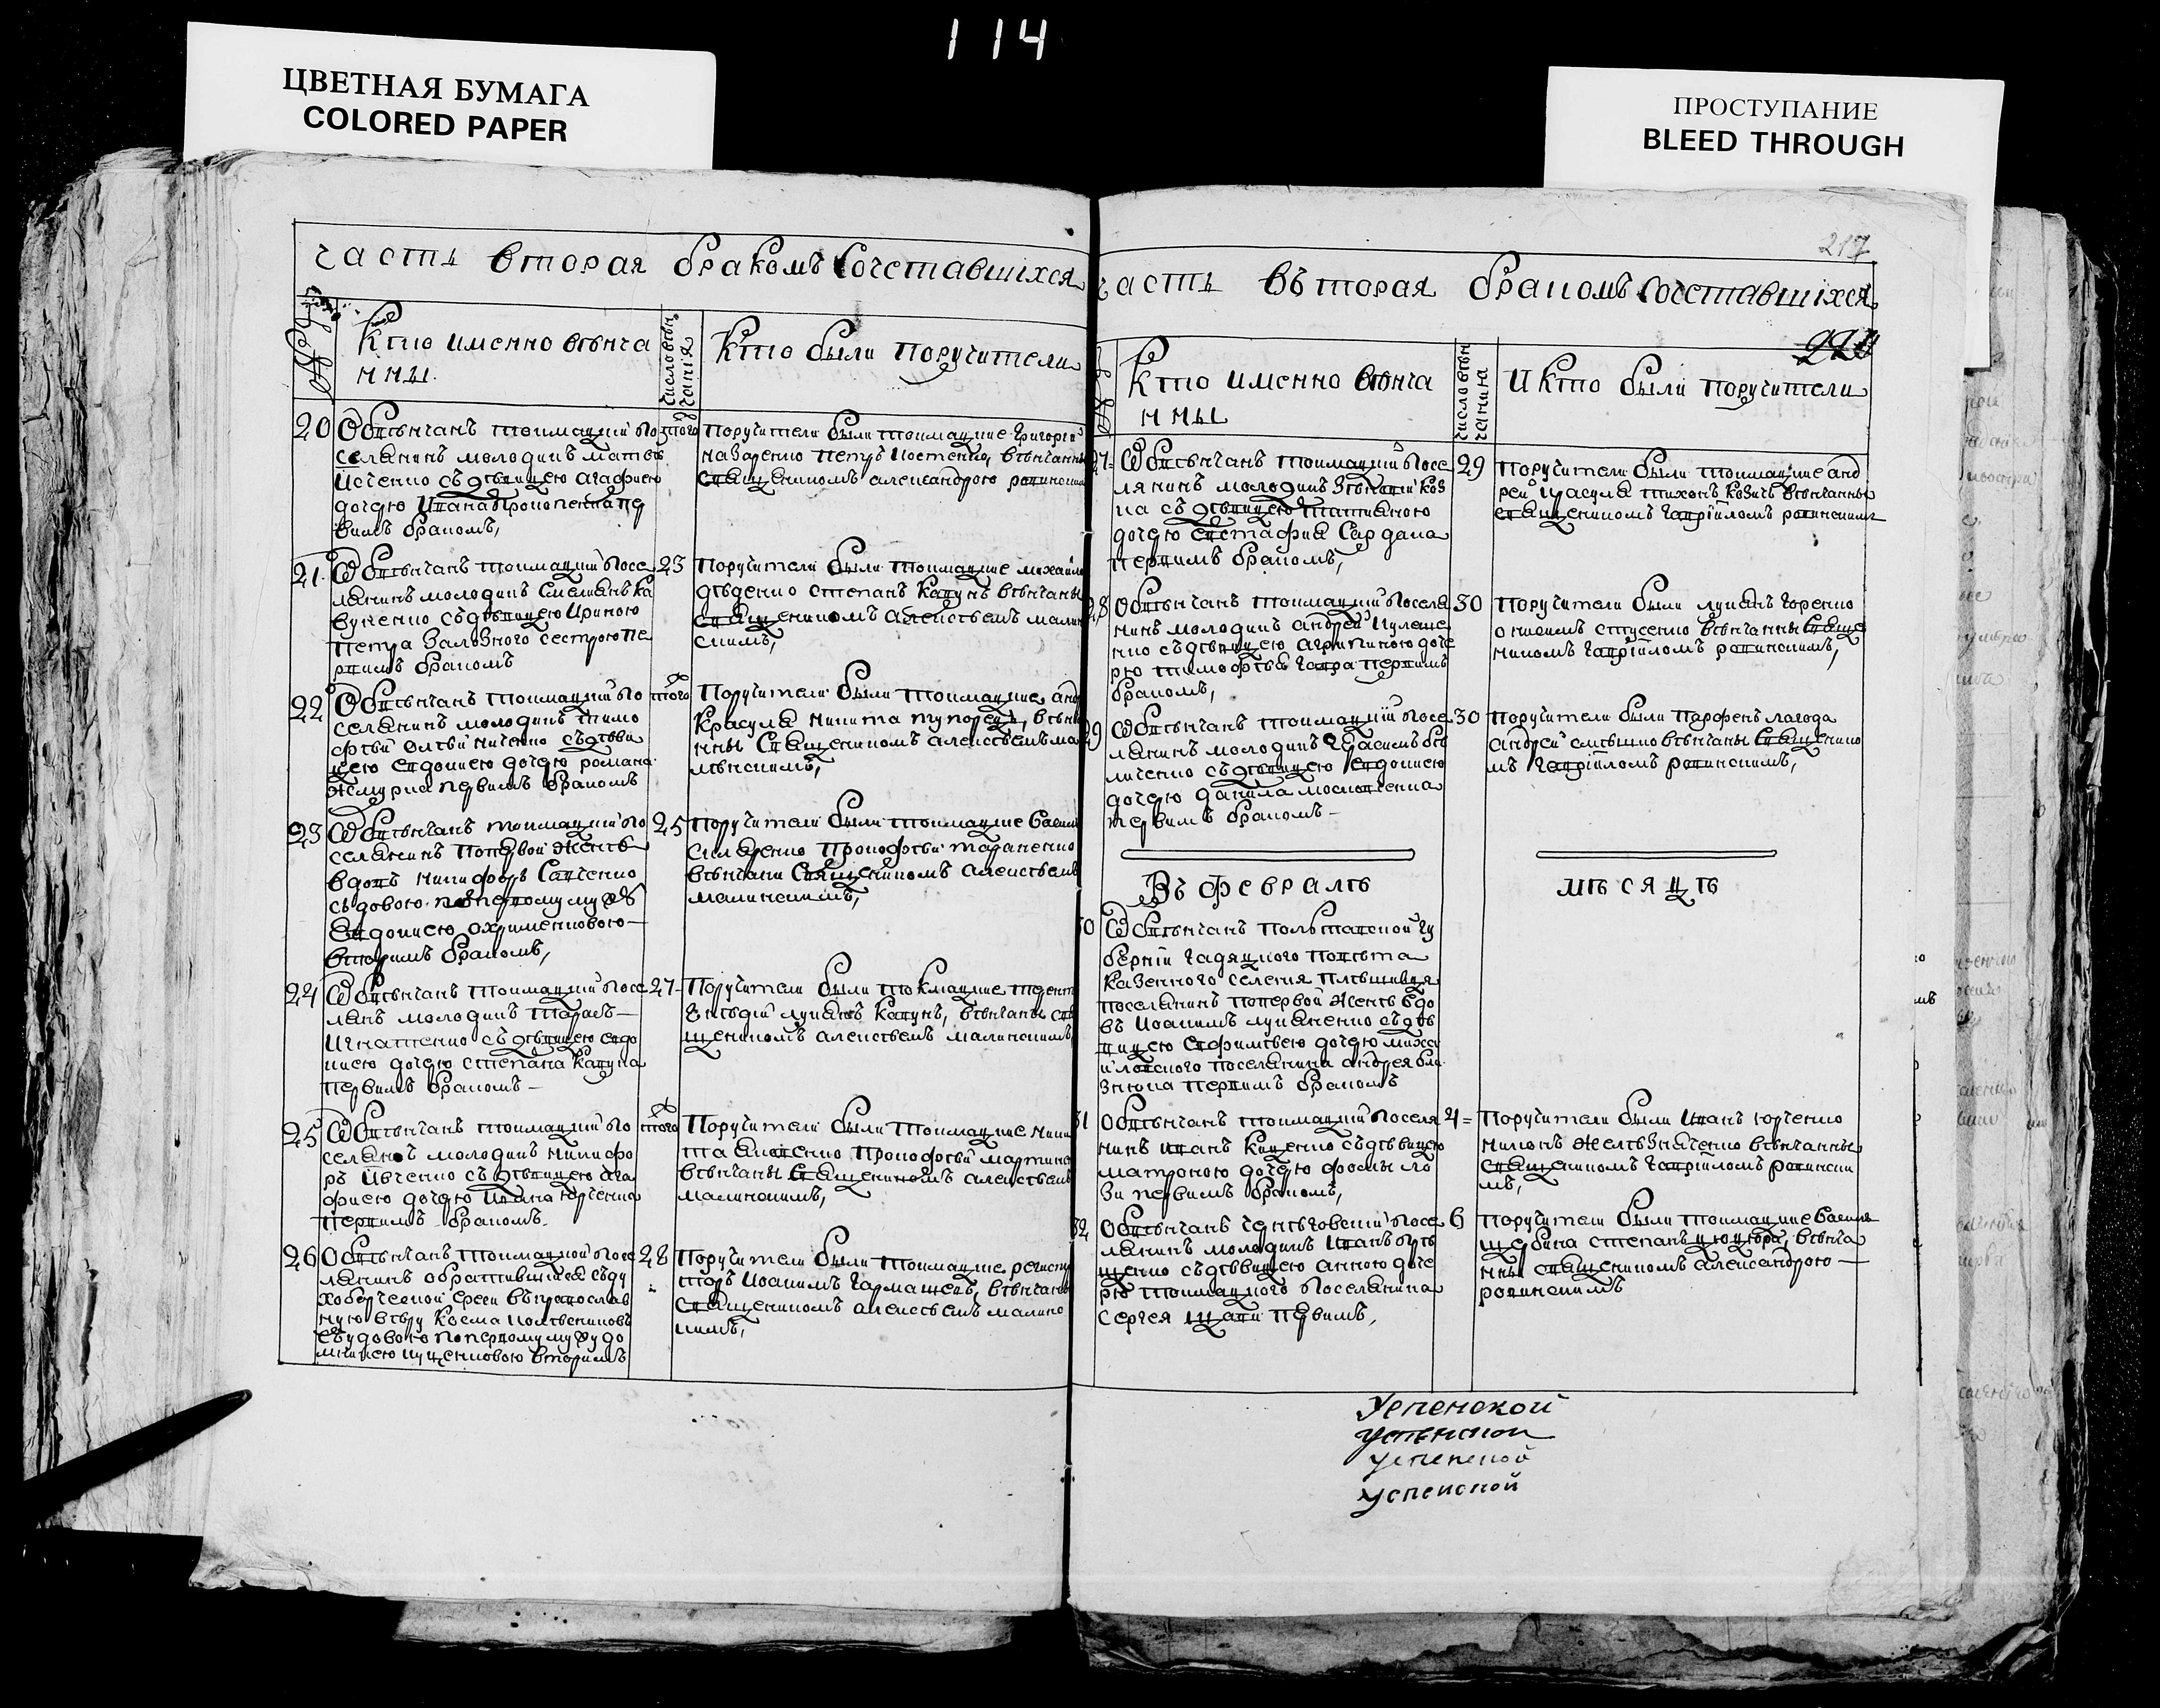 114
ЦВЕТНАЯ БУМАГА
COLORED PAPER
ПРОСТУПАНИЕ
BLEED THROUGH
часть вторая бракомъ сочетавшихся
Кто именно венча
нны.
число венчания
Кто были поручители
20 Обвенчанъ токмацкий по
селянинъ молодикъ матвей
съ девицею агафиею
дочерю Ивана Прокопенка пе
рвимъ бракомъ,
того
Поручители были токмацкие григорий
назаренко петръ костенко, венчаны
священникомъ александрою ровинским
21 Обвенчанъ токмацкий посе
лянинъ молодикъ Емелянъ ка
вуненко съ девицею Ириною
петра Зализного сестрою пе
рвимъ бракомъ
23
Поручители были токмацкие михайло
деденко степанъ кавунъ венчаны
священникомъ алексеемъ малин
скимъ,
22 Обвенчанъ токмацкий по
селянинъ молодикъ тимо
фей олейниченко съ деви
цею евдокиею дочерю романа
жмурка первимъ бракомъ
того
Поручители были токмацкие анд
Красуля никита тупорецъ, венча
нны священникомъ алексеемъ ма
линскимъ,
23 Обвенчанъ токмацкий по
селянинъ попервой жене
вдовъ никифоръ Савченко
съ вдовою попервому мужу
Евдокиею охрименковою
вторимъ бракомъ,
25
Поручители были токмацкие Васил
Скляренко прокофей тараненко
венчани священникомъ алексеемъ
малинскимъ,
24 Обвенчанъ токмацкий посе
лянъ молодикъ тарасъ
Игнатенко съ девицею евдо
киею дочерю степана кавуна
первимъ бракомъ
27
Поручители были токмацкие терент
лукянъ кавунъ, венчанъ свя
щеникомъ алексеемъ малинскимъ
25 Обвенчанъ токмацкий по
селянъ молодикъ никифо
ръ Ивченко съ девицею ага
фиею дочерю Ивана юрченка
первимъ бракомъ.
того
Поручители были токмацкие ники
та прокофей мартине
венчаны священникомъ алексеем
малинскимъ,
26 Обвенчанъ токмацкой посе
лянинъ обратившийся съ ду
хоборческой ереси въ православ
ную веру косма
съ удовою попервому мужу до
мникиею куценковою вторимъ
28
Поручители были токмацкие регистра
торъ Иоакимъ гармашевъ, венчаны
священникомъ алексеемъ малинс
кимъ,
217
часть въторая бракомъ сочетавшихся
Кто именно венча
нны
число венчения
И кто были поручители
27 Обвенчанъ токмацкий посе
лянинъ молодикъ коз
ка съ девицею татианою
дочерю евстафия Сардака
первимъ бракомъ,
29
Поручители были токмацкие анд
рей красуля тихонъ козикъ венчанны
священикомъ гавриломъ ровинскимъ
28 Обвенчанъ токмацкий поселя
нинъ молодикъ андрей кулеше
нко съ девицею агрипиною доче
рю тимофея гавра первимъ
бракомъ,
30
Поручители были лукянъ горенко
онисимъ стусенко венчанны свяще
никомъ гавриломъ ровинскимъ,
29 Обвенчанъ токмацкий посе
лянинъ молодикъ герасимъ
личенко съ девицею евдокиею
дочерю данила москвченка
первимъ бракомъ
30
Поручители были парфенъ лагода
андрей смешко венчаны священико
мъ гавриломъ ровинскимъ,
Въ феврале
месяце
30 Обвенчанъ полтавской гу
бернии гадяцкого повета
казенного селения плешивця
поселянинъ попервой жене вдо
въ Иоакимъ лукяненко съ де
вицею евфимиею дочерю миха
йловского поселянина андрея бли
знюка первимъ бракомъ
31 Обвенчанъ токмацкий поселя
нинъ иванъ куценко съ девицею
матроною дочерю фомы ло
зи первимъ бракомъ,
4
Поручители были Иванъ юрченко
никонъ железняченко венчанны
священикомъ гавриломъ ровински
мъ,
32 Обвенчанъ чернеговский посе
лянинъ молодикъ Иванъ
щенко съ девицею анною доче
рю токмацкого поселянина
Сергея первимъ,
6
Поручители были токмацкие Василь
щербина степанъ цюцюра, венча
нны священикомъ александрою
ровинскимъ
Успенской
Успенской
Успенской
Успенской